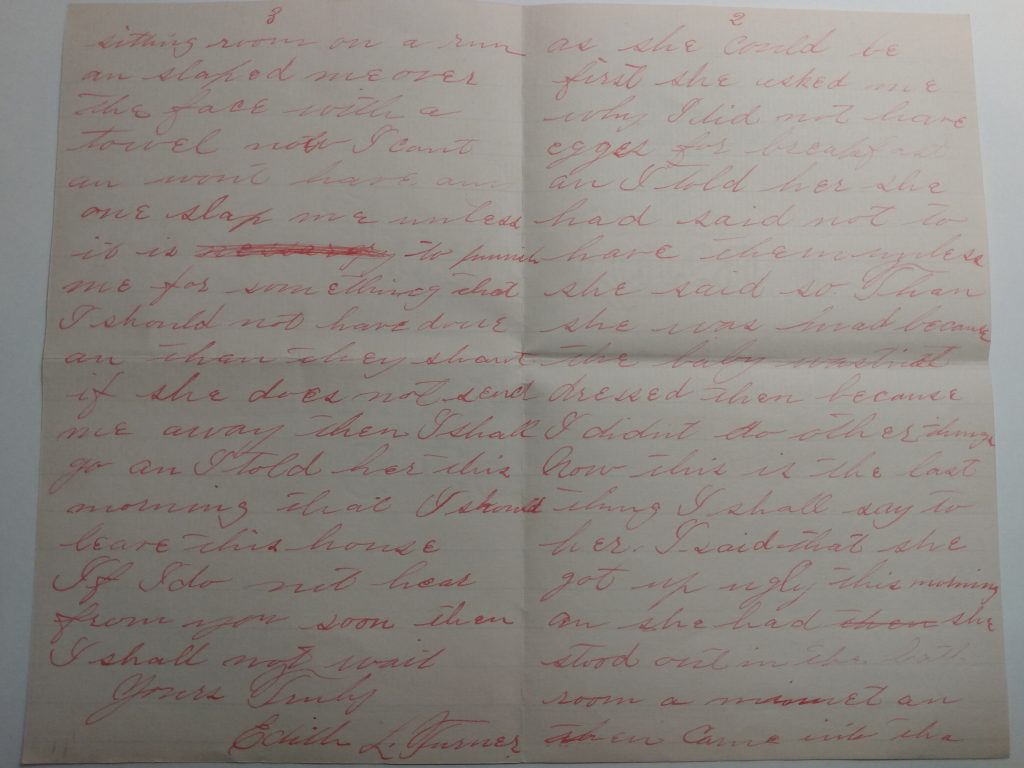 2
as she could be
first she asked me
why I did not have
eggs for breakfast
an I told her she
had said not to
have them unless
she said so. Than
she was mad because
the baby wastnt
dressed then because
I didnt do other things
Now this is the last
thing I shall say to
her. I said that she
got up ugly this morning
an she had then she
stood out in the bath
room a minuet an
then came into the
3
sitting room on a run
an slaped me over
the face with a
towel now I cant
an wont have any
one slap me unless
it is nessary to punish
me for something that
I should not have done
an then they shant
if she does not send
me away then I shall
go an I told her this
morning that I should
leave this house
If I do not hear
from you soon then
I shall not wait
Yours Truly
Edith L. Turner